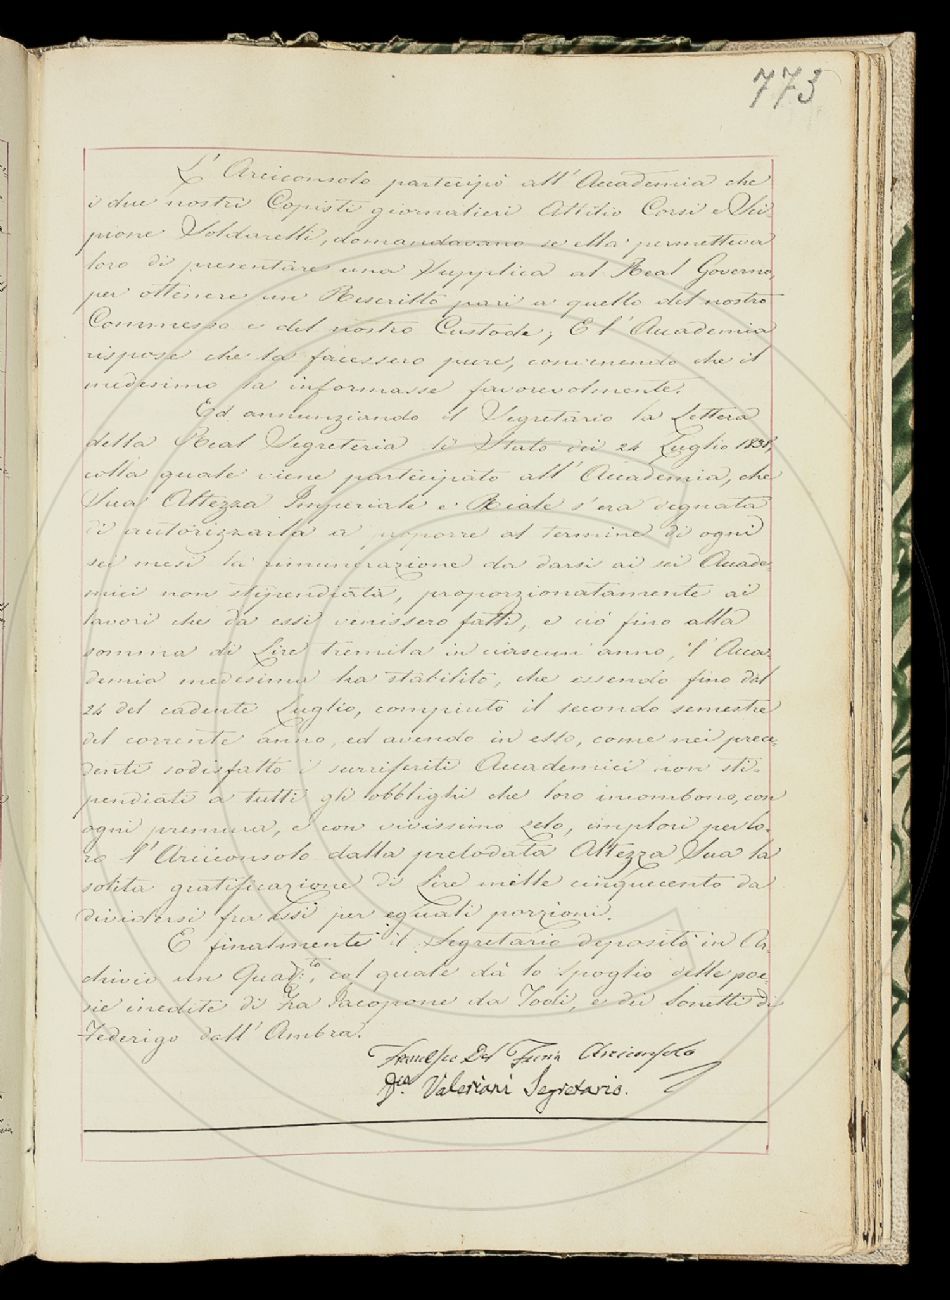 773
L' Arciconsolo partecipò all' Accademia che
i due nostri Copisti giornalieri Attilio Corsi e Sci-
pione Soldarelli, domandavano se ella permetteva
loro di presentare una Supplica al Real Governo,
per ottenere un Rescritto pari a quello del nostro
Commesso e del nostro Custode; E l' Accademia
rispose che la facessero pure, convenendo che il
medesimo la informasse favorevolmente.
Ed annunziando il Segretario la Lettera
della Real Segreteria di Stato dei 24 Luglio
colla quale viene partecipato all' Accademia, che
Sua Altezza Imperiale e Reale s' era degnata
di autorizzarla a proporre al termine di ogni
sei mesi la rimunerazione da darsi ai sei Accade-
mici non stipendiati, proporzionatamente ai
lavori che da essi venissero fatti, e ciò fino alla
somma di Lire tremila in ciascun' anno, l' Acca-
demia medesima ha stabilito, che essendo fino dal
24 del cadente Luglio, compiuto il secondo semestre
del corrente anno, ed avendo in esso, come nei prece-
denti sodisfatto i surriferiti Accademici non sti-
pendiati a tutti gli obblighi che loro incombono, con
ogni premura, e con vivissimo zelo, implori per lo-
ro l' Arciconsolo dalla prelodata Altezza Sua la
solita gratificazione di Lire mille cinquecento da
dividersi fra essi per eguali porzioni.
E finalmente il Segretario depositò in Ar-
chivio un Quad:to, col quale dà lo spoglio delle poe-
sie inedite di Fra Jacopone da Todi, e dei Sonetti di
Federigo dall' Ambra.
Francesco Del Furia Arciconsolo
Valeriani Segretario.